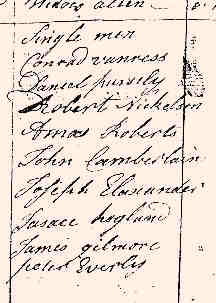 Widow allen
Single men
Conrad vanness
Daniel pursley
Robert Nickelson
Amas Roberts
John Camberlain
Joseph Elaxander
Isaac hogland
James gilmore
peter Everly